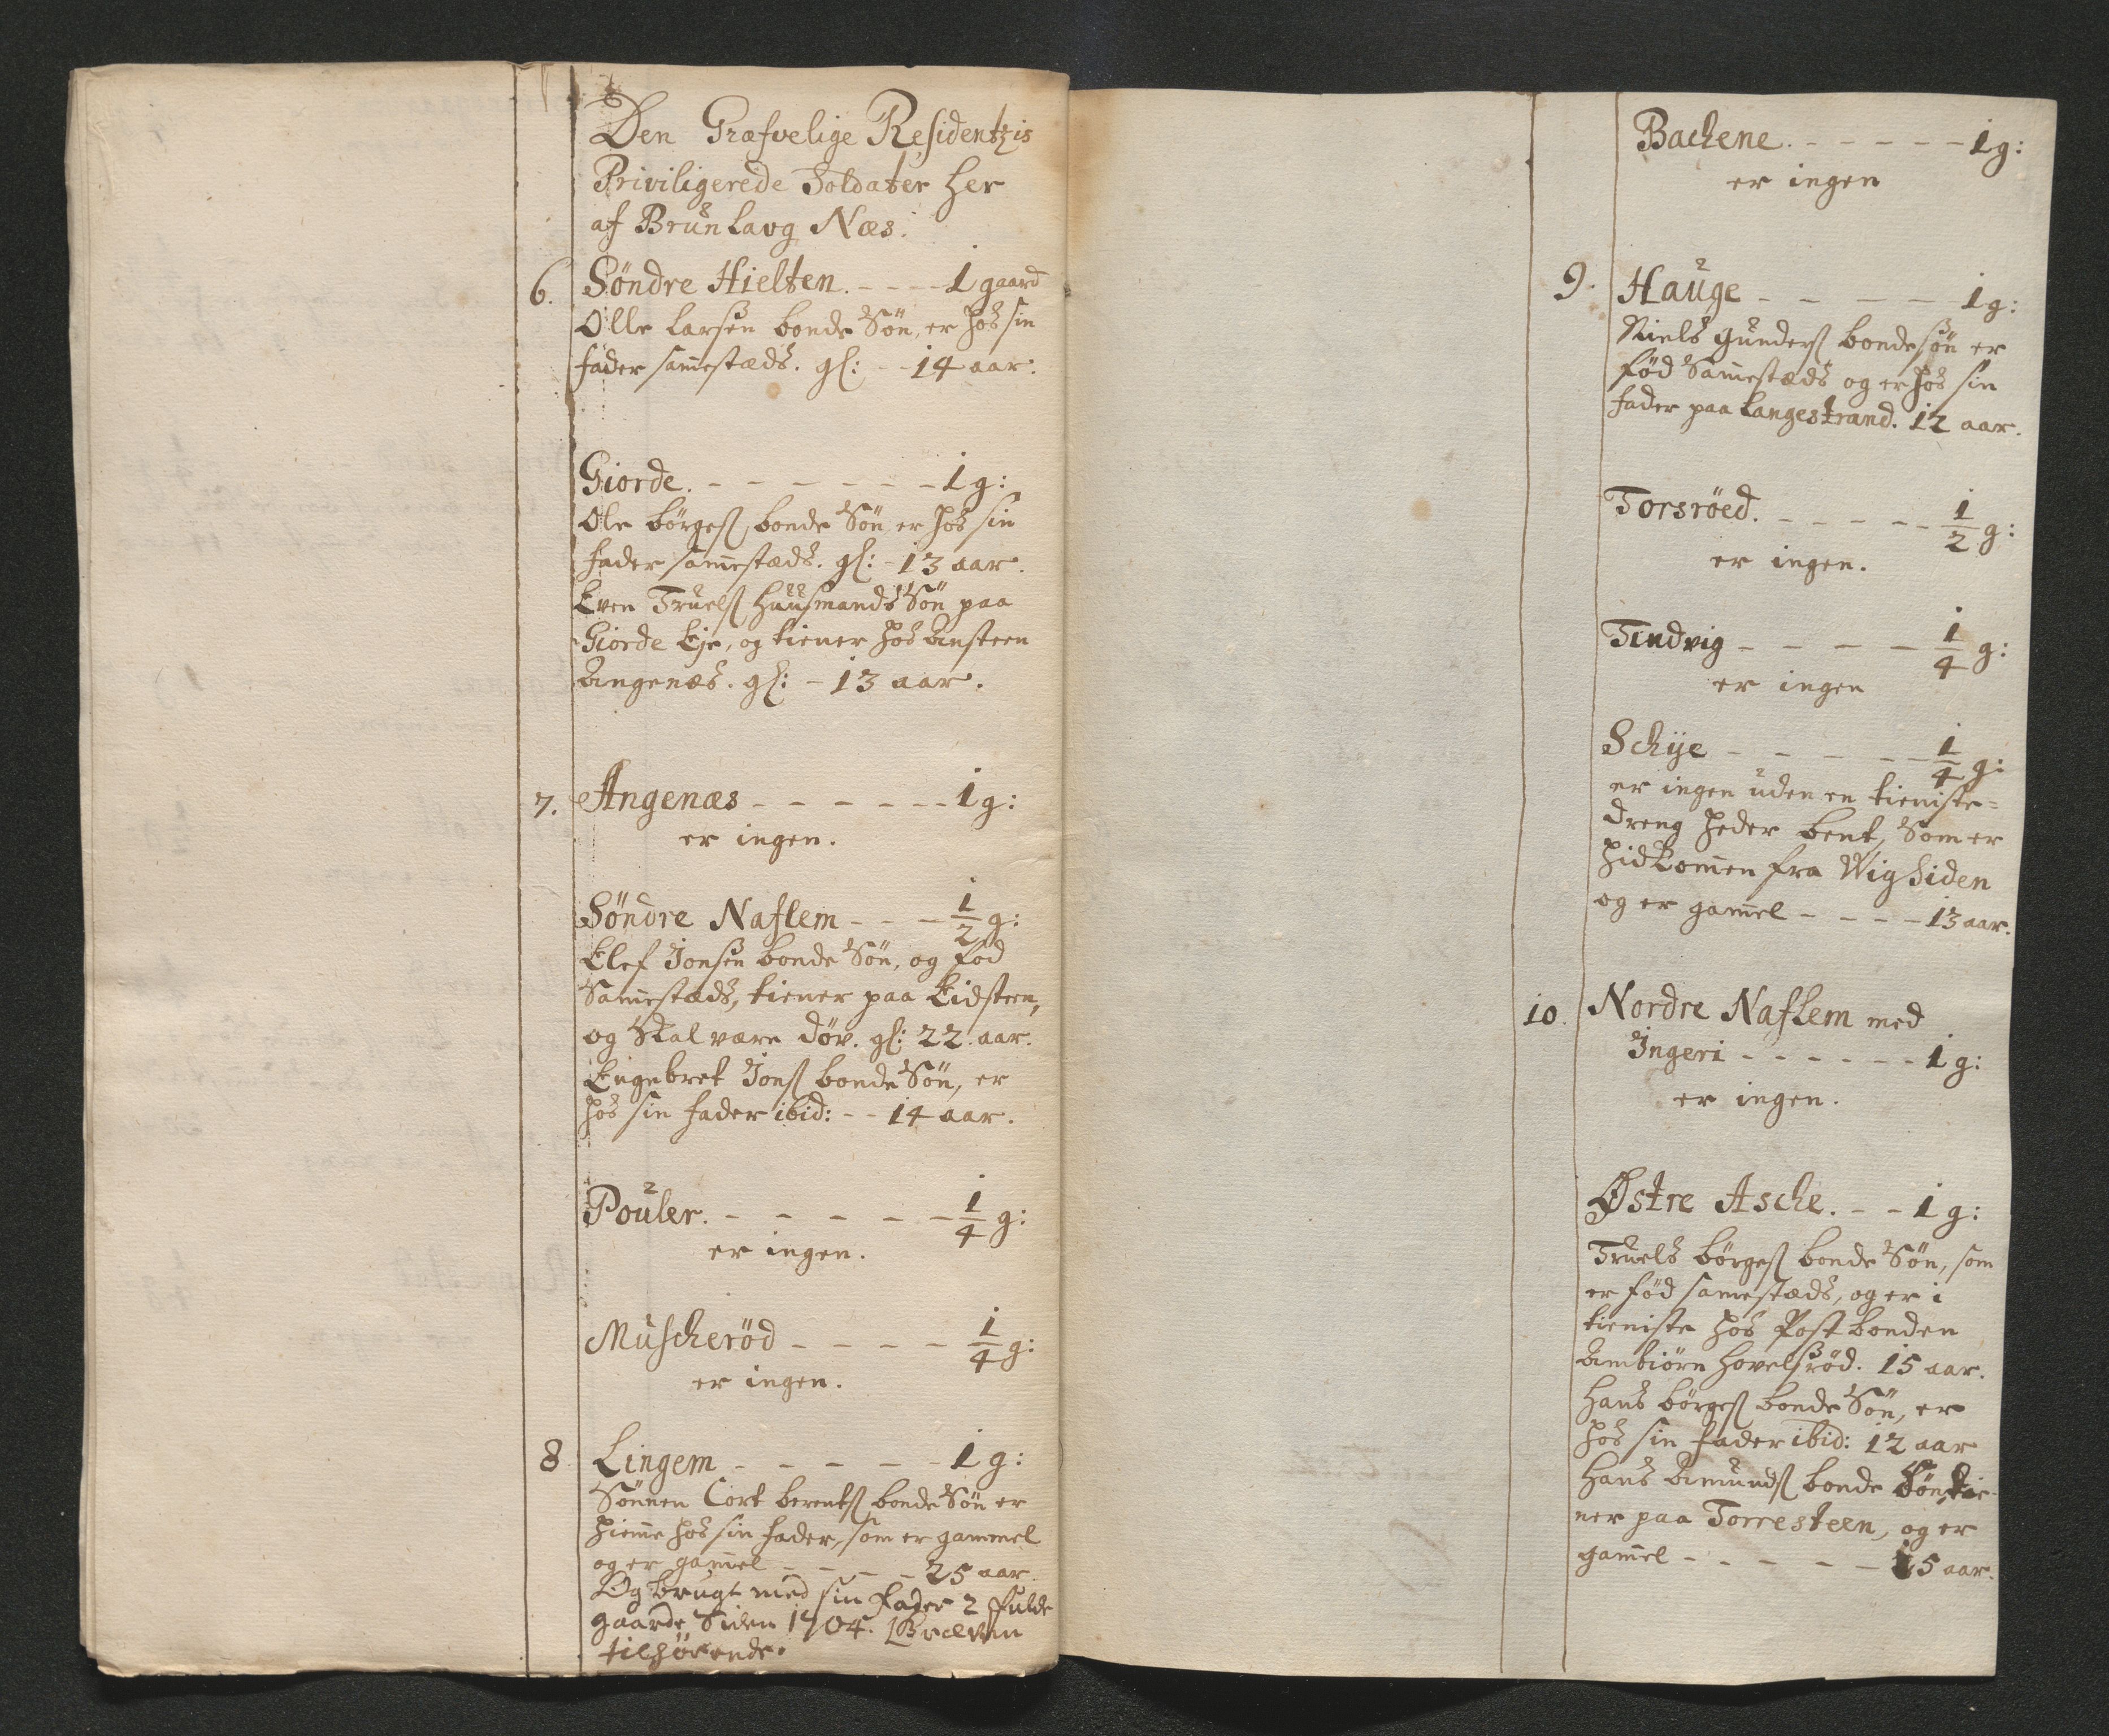 Den Græfvelige Residentzis
Priviligerede Soldater her
af Brunlaug Næs.
6. Søndre Hielten. - - - - 1 gaard
Olle Larsen bonde Søn, er hos sin
fader sammestæds. gl: - - 14 aar:
Giorde. - - - - - - - 1 g:
Ole børges. bonde Søn er hos sin
fader sammestæds. gl: - 13 aar.
Even Truels. Huusmands Søn paa
Giorde Eje, og tiener hos Ansteen
Angenæs. gl: - 13 aar.
7. Angenæs - - - - - - 1 g:
er ingen.
Søndre Naflem - - - 1/2 g:
Elef Jonsen bonde Søn, og fød
Sammestæds, tiener paa Eidsteen,
og Skal være døv. gl: 22 aar.
Engebret Jons. bonde Søn, er
hos sin fader ibid: - - 14 aar.
Pouler. - - - - - 1/4 g:
er ingen.
Muscherød - - - - 1/4 g:
er ingen.
8 Lingem - - - - - 1 g:
Sønnen Cort berents. bonde Søn er
hiemme hos sin fader, som er gammel
og er gammel - - - - 25 aar.
Og brugt med sin Fader 2 fulde
gaarde Siden 1704. Græven
tilhørende.
Bachene. - - - - - - 1 g:
er ingen
9. Hauge - - - - 1 g:
Niels Gunders. bondesøn er
fød Sammestæds og er hos sin
fader paa Langestrand. 12 aar.
Torsröed. - - - - - 1/2 g:
er ingen.
Tindvig - - - - 1/4 g:
er ingen
Schije - - - - - 1/4 g:
er ingen uden en tieniste=
dreng Peder bent, Som er
hidkommen fra Wigsiden
og er gammel - - - - 13 aar.
10. Nordre Naflem med
Ingeri - - - - - - 1 g:
er ingen.
Østre Asche. - - 1 g:
Truels børges. bonde Søn, som
er fød sammestæds, og er i
tieniste hos Post bonden
Ambiørn Hovelsrød. 15 aar.
Hans børges. bonde Søn, er
hos sin fader ibid: 12 aar
Hans Amunds. bonde Søn, tie-
ner paa Torresteen, og er
gammel - - - - - 15 aar.